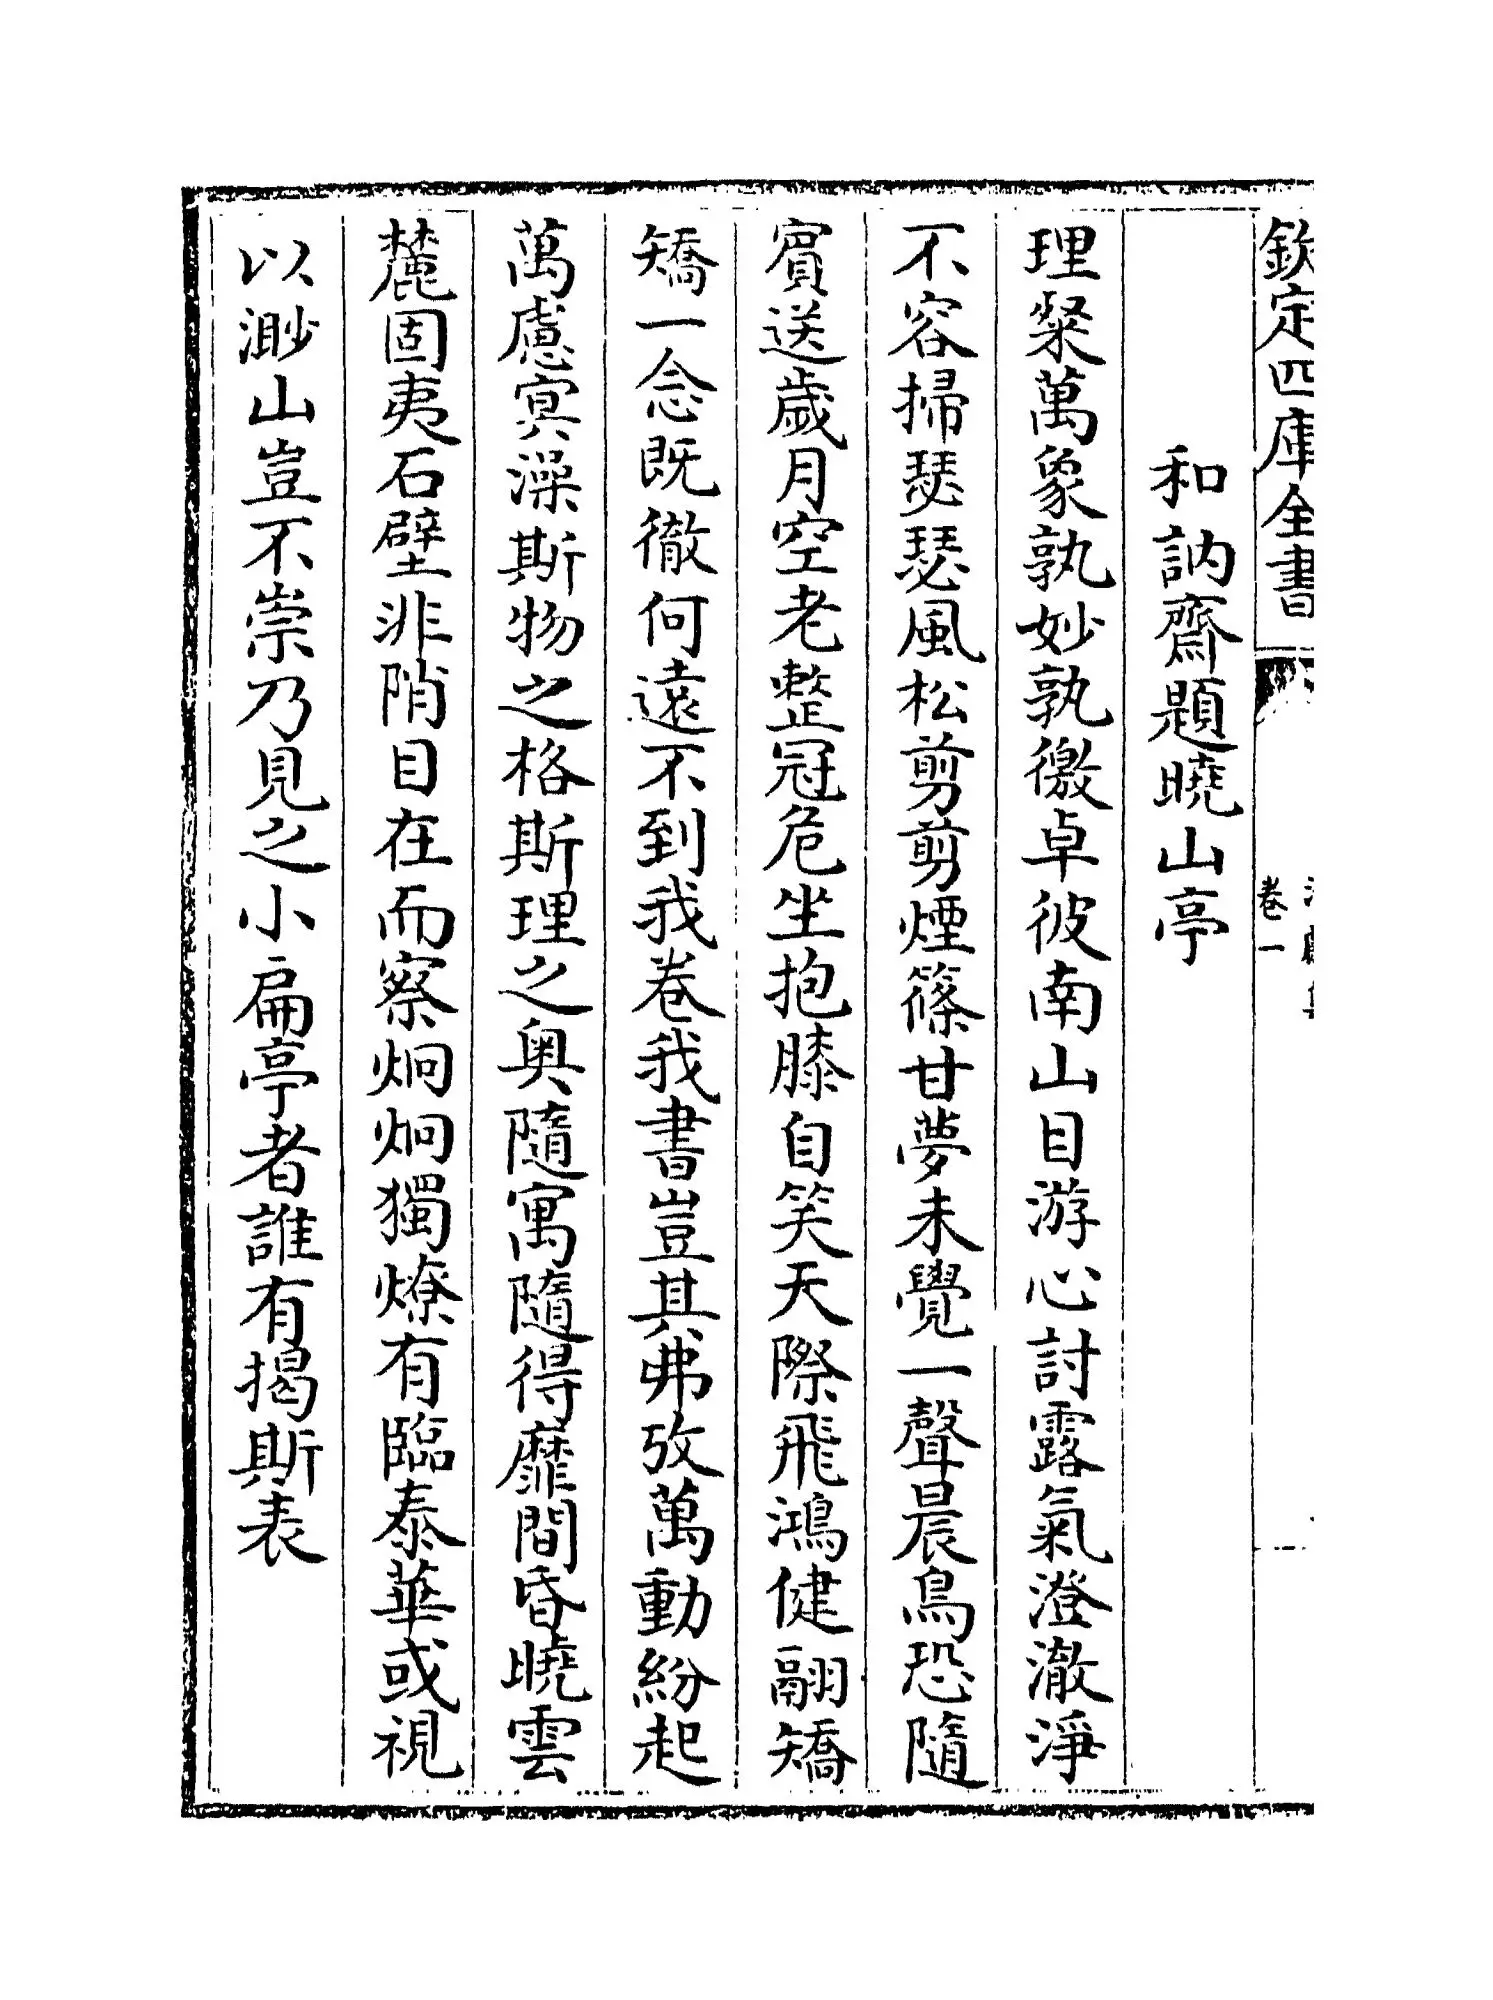 欽定四庫全書
卷一
和訥齋題曉山亭
理粲萬象孰妙孰徼卓彼南山目游心討露氣澄澈淨
不容掃瑟瑟風松剪剪煙篠甘夢未覺一聲晨鳥恐隨
賓送歲月空老整冠危坐抱膝自笑天際飛鴻健翮矯
矯一念既徹何遠不到我卷我書豈其弗攷萬動紛起
萬慮㝠澡斯物之格斯理之奥隨寓隨得靡間昏曉雲
麓固夷石壁非陗目在而察炯炯獨燎有臨泰華或視
以渺山豈不崇乃見之小扁亭者誰有揭斯表